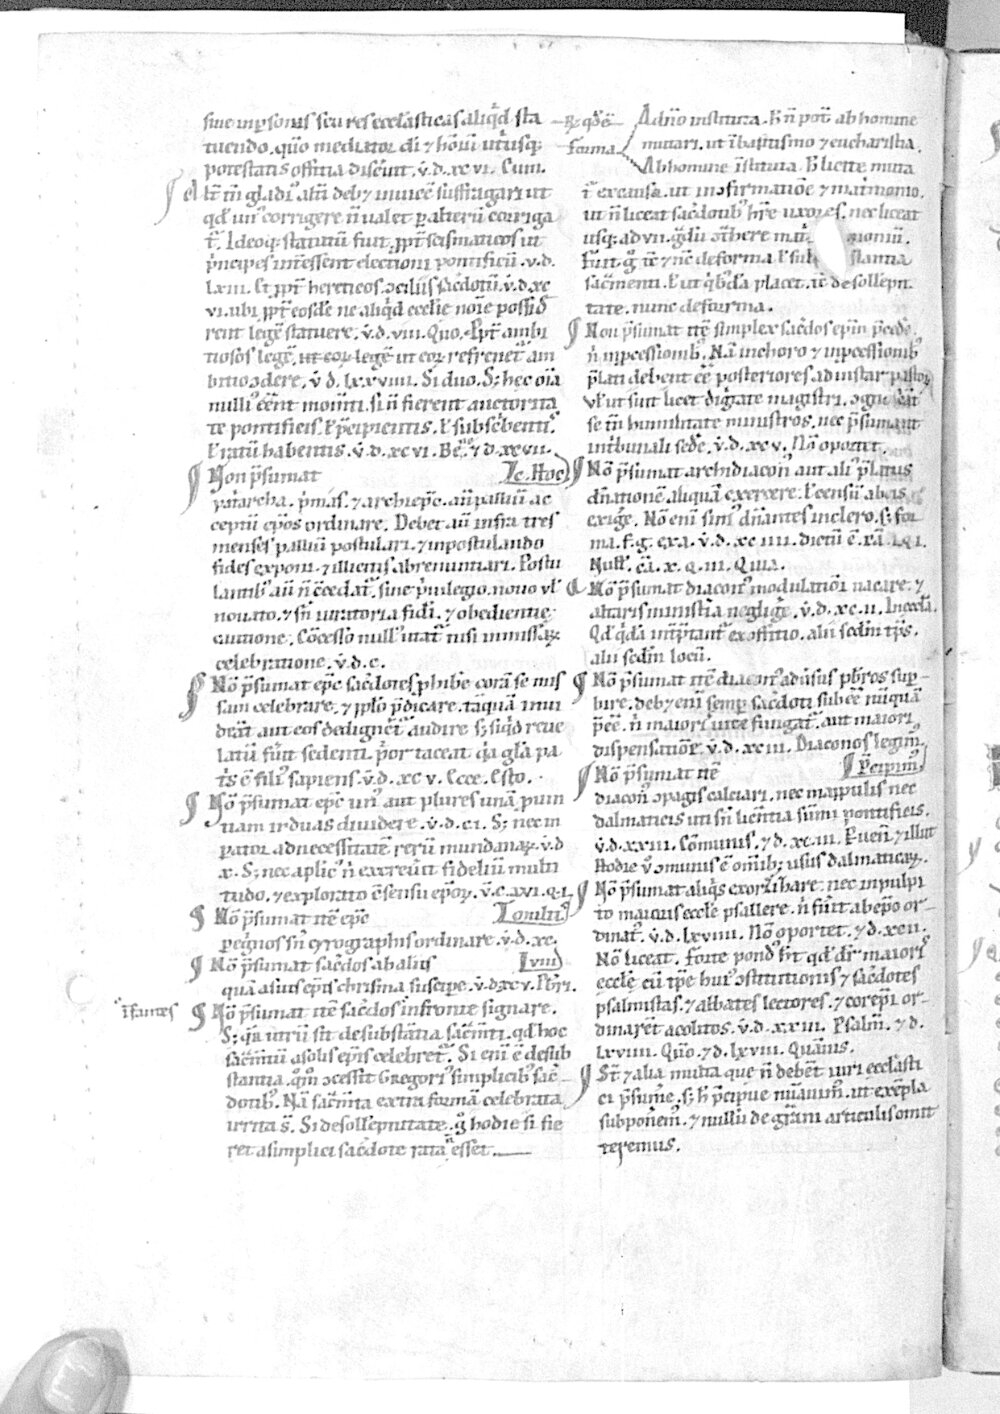 siue in p̱sonis seu res eccl̄asticas aliq̇d sta
tuendo. quō mediator di ⁊ hōiū utriusq;
potestatis offitia discēuit. v̄.d. xc vi. Cum.
¶ Itē m̄ gladiꝰ alt̄ū deb⁊ inuicē suffragari ut
qd̓ unꝰ corrigere n̄ ualet ꝑ alterū corriga
t̄. Ideoq; statutū fuit ꝓpt̄ scismaticos ut
p̄ncipes int̄essent electioni pontificū. v̄.d.
lxiii. Et ꝓpt̄ hereticos. ↄciliis sac̄dotū. v̄.d. xc
vi. ubi ꝓpt̄ eosdē ne aliq̇d eccl̄ie noīe possid̄
rent legē statuere. v̄.d. viii. Quo. Ꝑpt̄ ambi
tiosos legē. ut eor̄ legē ut eor̄ refrenet̄ am
bitio ↄdere. v̄.d. lxxviiii. Si duo. S; hec oīa
nulliꝰ eēnt mom̄ti. si n̄ fierent auctorita
te pontificis. ł p̄cipientis. ł subsc̄bentis.
ł ratū habentis. v̄.d. xc vi. Bn̄. ⁊ d. xcvii.
¶ Non p̄sumat
c. Hoc
pat̄archa. p̄mas. ⁊ archiep̄c. añ palliū ac
ceptū ep̄os ordinare. Debet aū infra tres
menses palliū postulari. ⁊ in postulando
fides exponi. ⁊ illicitis abrenuntiari. Postu
lantibꝰ aū n̄ c̄cedat̄. sine p̄uilegio. nouo vł
nouato. ⁊ sn̄ iuratoria fidei. ⁊ obedientie
cautione. Cōcesso nullꝰ utat̄ nisi in missaꝝ
celebratione. v̄.d. c.
¶ Nō p̄sumat ep̄c sac̄dotes ꝓhibe corā se mis
sam celebrare. ⁊ pp̄lo p̄dicare. tāquā inui
deat aut eos dedignet̄ audire s; siq̇d reue
latū fūit sedenti. p̄or taceat q̇a gl̄a pa
t̄s ē filiꝰ sapiens. v̄.d. xc v. Ecce. Esto.
¶ Nō p̄sumat ep̄c unꝰ aut plures unā ꝓuin
tiam in duas diuidere. v̄.d. ci. S; nec im
perator ad necessitatē rerū mundanaꝝ. v̄.d
x. S; nec ap̄licꝰ n̄ excreuīt fideliū multi
tudo. ⁊ explorato c̄sensu ep̄oꝝ. v̄.c. xvi. q. i.
¶ Nō p̄sumat itē ep̄c
ꝑegnos sn̄ cyrographis ordinare. v̄.d. xc.
¶ Nō p̄sumat sac̄dos ab aliis
lviii
quā a suis ep̄is chrisma suscipe. v̄.d. xc v. Pb̄ri.
¶ Nō p̄sumat itē sac̄dos in fronte signare.
īfantes
S; q̄a utrū sit de substātia sac̄m̄ti. qd̓ hoc
sac̄m̄tū a solis ep̄is celebret̄. Si enī ē de sub
stantia. qm̄ ↄcessit Gregoriꝰ simplicibꝰ sac̄
dotibꝰ. Nā sac̄m̄ta extra formā celebrata
irrita s̄. Si de sollempnitate. g̊ hodie si fie
ret a simplici sac̄dote rata esset.
R̄. qd̓ē
forma
A dn̄o instituta. h̄ n̄ pot̄ ab homine
mutari. ut ī baptismo ⁊ eucharistia.
Ab homine īstituta. h̄ licite muta
t̄ ex causa. ut in ↄfirmatiōe ⁊ mat̄monio.
ut n̄ liceat sac̄dotibꝰ h̄re uxores. nec liceat
usq; ad vii. g̊dū ↄt̄here mat̄ moniū.
fuit g̊ tc̄ ⁊ nc̄ de forma. ł sub stantia
sac̄menti. ł ut q̇bꝰdā placet. tc̄ de sollēpn
tate. nunc de forma.
¶ Non p̄sumat itē simplex sac̄dos ep̄m p̄cedē.
n̄ in ꝓcessionibꝰ. Nā in choro ⁊ in ꝓcessionibꝰ
p̄lati debent eē posteriores ad instar pastor̄
vł ut sint licet dig̊tate magistri. ↄgnoscāt
se tn̄ humilitate ministros. nec p̄sumant
in tribunali sedē. v̄.d. xc v. Nō oportet.
¶ Nō p̄sumat archidiaconꝰ aut aliꝰ p̄latus
dn̄ationē aliquā exercere. ł censū ab eis
exigē. Nō enī simꝰ dn̄antes in clero. s; for
ma. f. g. ex a. v̄.d. xc iiii. dictū ē. ca. i. q. i.
Null. cā. x. q. iii. Quia.
Nō p̄sumat diaconꝰ modulatiōi uacare. ⁊
altaris minist̄ia negligē. v̄.d. xc.ii. In eccl̄a.
Qd̓ q̇dā int̄p̄tant̄ ex offitio. alii sed̄m tp̄s.
alii sed̄m locū.
¶ Nō p̄sumat itē diaconꝰ aduersus pb̄ros suꝑ
bire. deb⁊ enī semꝑ sac̄doti subēē nūquā
p̄ēē. n̄ maiori uice fungat̄. aut maiori
dispensatiōe. v̄.d. xciii. Diaconos legim̄.
¶ Nō p̄sumat itē
¶ P̄cipim̄
diaconꝰ ↄpagis calciari. nec mappulis nec
dalmaticis uti sn̄ licentia sūmi pontificis.
v̄.d. xxiii. Cōmunis. ⁊ d. xc iii. ł uen̄. ⁊ illut
Hodie v̊ ↄmunis ē omīb; usus dalmaticaꝝ.
¶ Nō p̄sumat aliq̇s exorc̄ihare. nec in pulpi
to maiꝰus eccl̄e psallere. n̄ fūit ab ep̄o or
dinatꝰ. v̄.d. lxviiii. Nō oportet. ⁊ d. xcii.
Nō liceat. forte pondꝰ h̄t qd̓ dr̄ maiori
eccl̄e. cū tp̄e huiꝰ ↄstitutionis ⁊ sac̄dotes
psalmistas. ⁊ abbates lectores. ⁊ corep̄i or
dinarēt acolitos. v̄.d. xxiii. Psalm̄. ⁊ d.
lxviiii. Quō. ⁊ d. lxviii. Quāuis.
¶ St̄ ⁊ alia multa que n̄ debēt uiri eccl̄asti
ci p̄sumē. s; h̄ p̄cipue nūauimꝰ. ut exēpla
subponēmꝰ. ⁊ nullū de g̊tiani articulis omit
teremus.